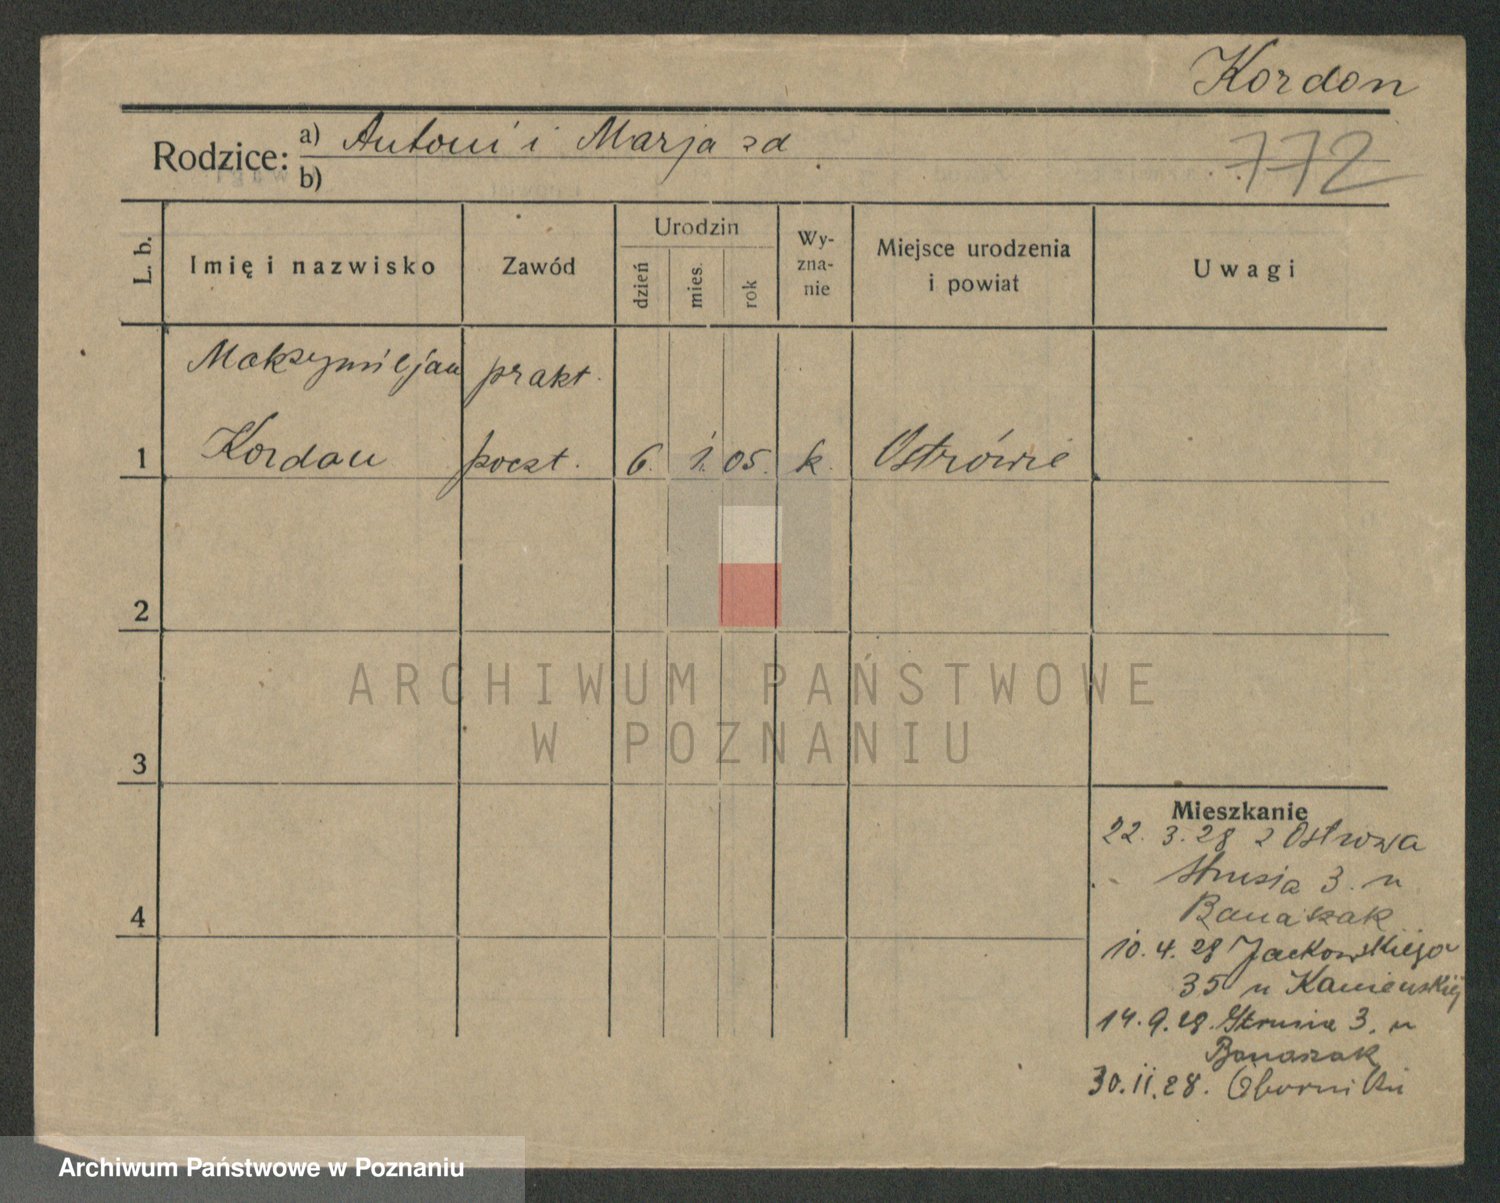 Kordon
Rodzice:
a) Antoni i Marja zd
b)
772
L. b.
Imię i nazwisko
Zawód
Urodzin
dzień
mies.
rok
Wy-
zna-
nie
Miejsce urodzenia
i powiat
Uwagi
Maksymiljan prakt.
1 Kordon poczt. 6. 1. 05. k. Ostrówie
2
3
4
ARCHIWUM PAŃSTWOWE
W POZNANIU
Mieszkanie
22. 3. 28 z Ostrowa
Strusia 3. u
Banaszak
10. 4. 28 Jackowskiego
35 u Kamieńskiej
14. 9. 28. Strusia 3. u
Banaszak
30. 11. 28. Oborniki
Archiwum Państwowe w Poznaniu